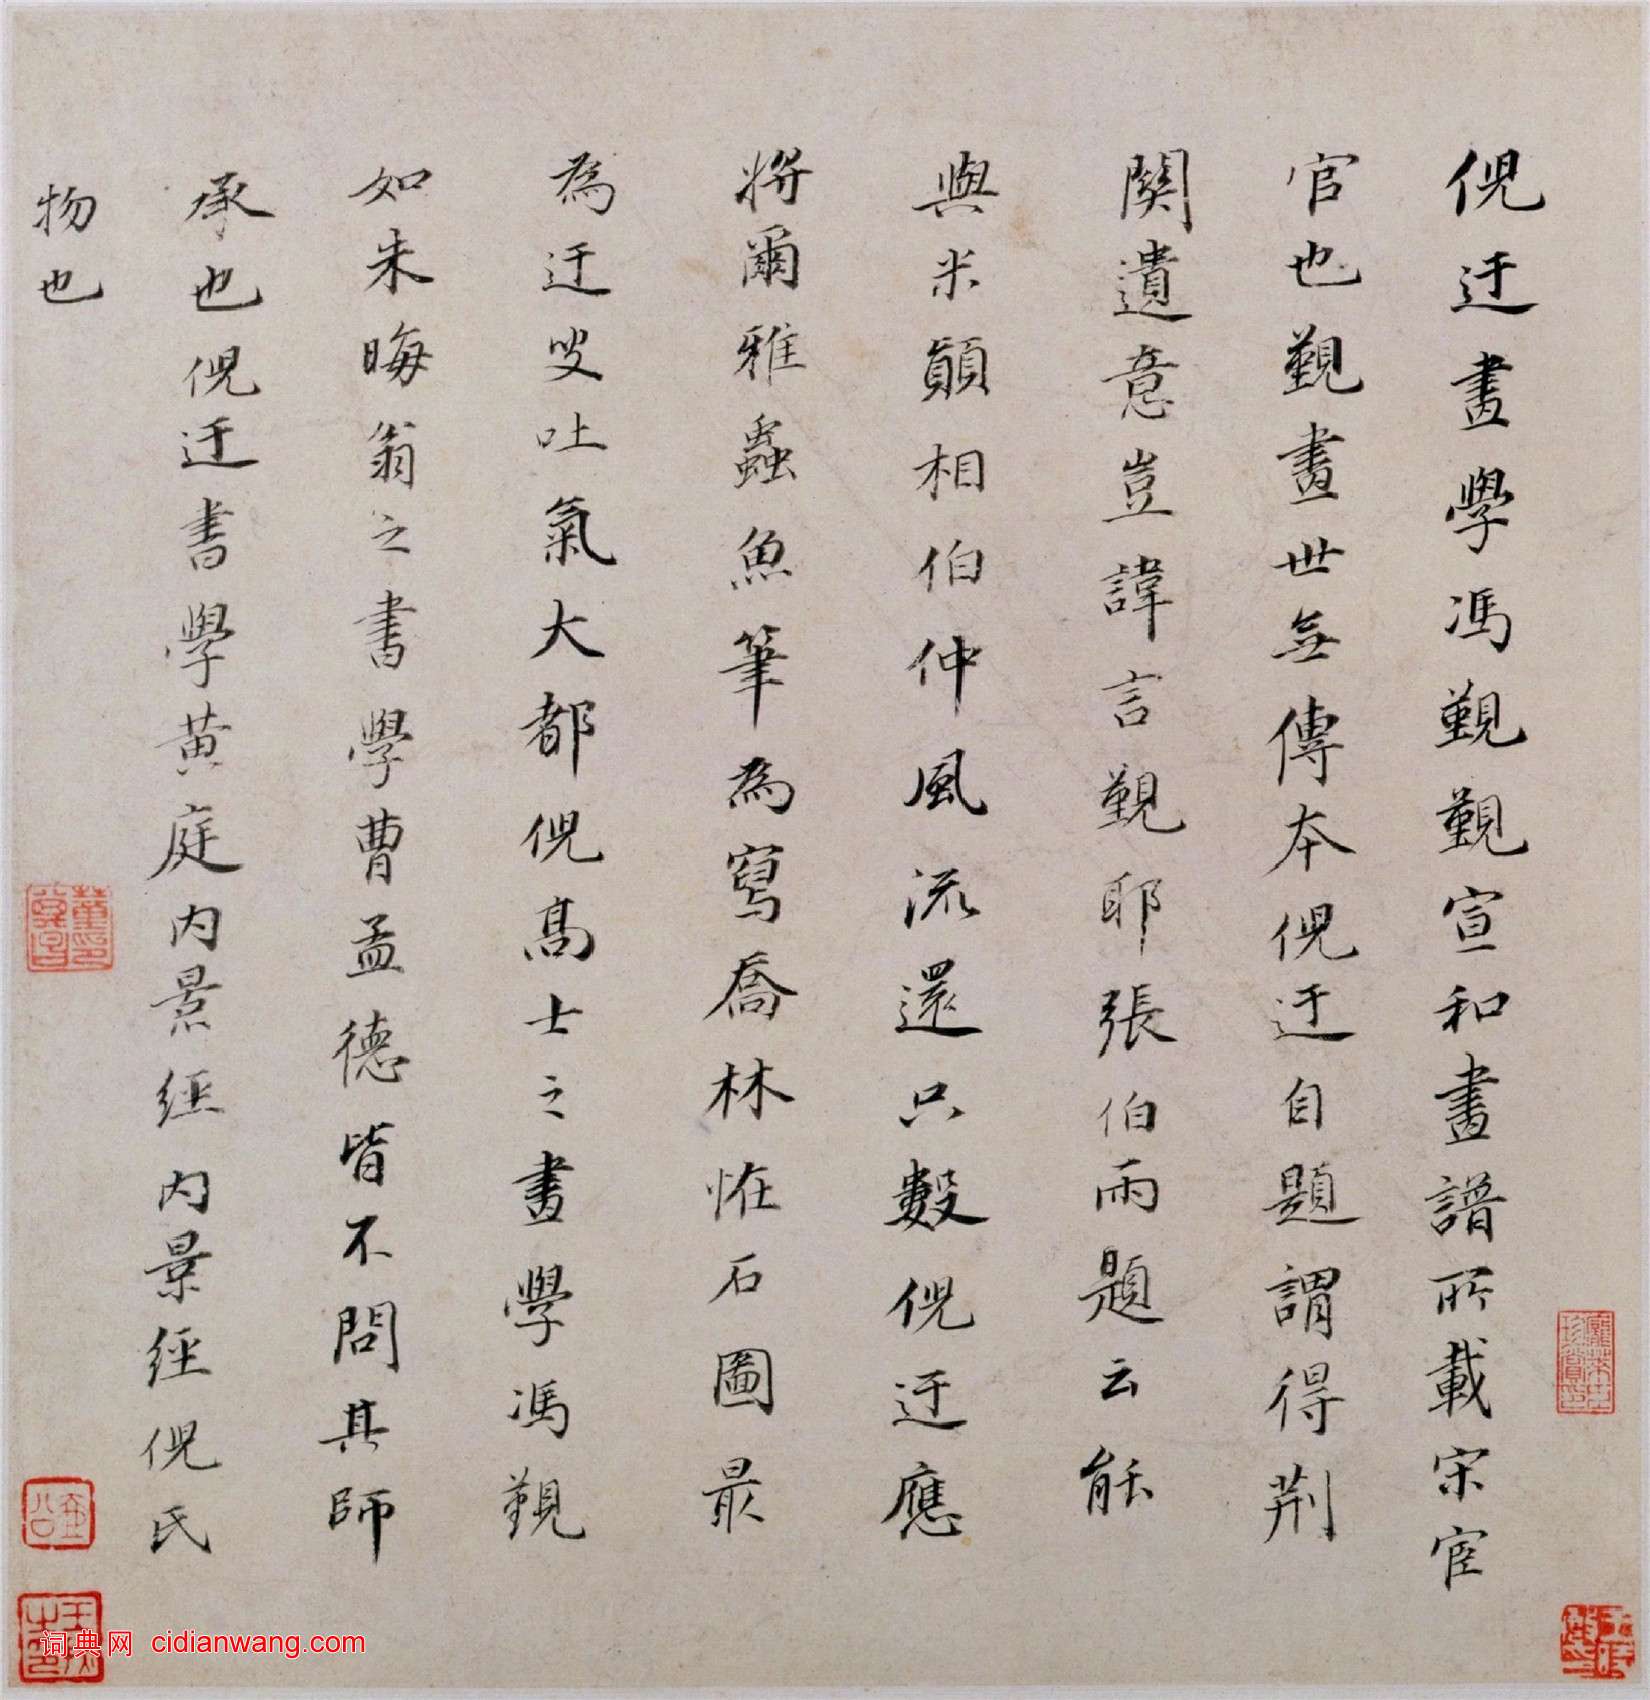 倪迂畫學馮覲覲宣和畫譜所載宋宦
官也覲畫世無傳本倪迂自題謂得荆
関遺意豈諱言覲耶張伯雨題云能
與米顛相伯仲風流還只數倪迂應
將爾雅蟲魚筆為寫喬林恠石圖最
為迂叟吐氣大都倪髙士之畫學馮覲
如朱晦翁之書學曹孟德皆不問其師
承也倪迂書學黄庭内景經内景經倪氏
物也
词典网 cidianwang.com